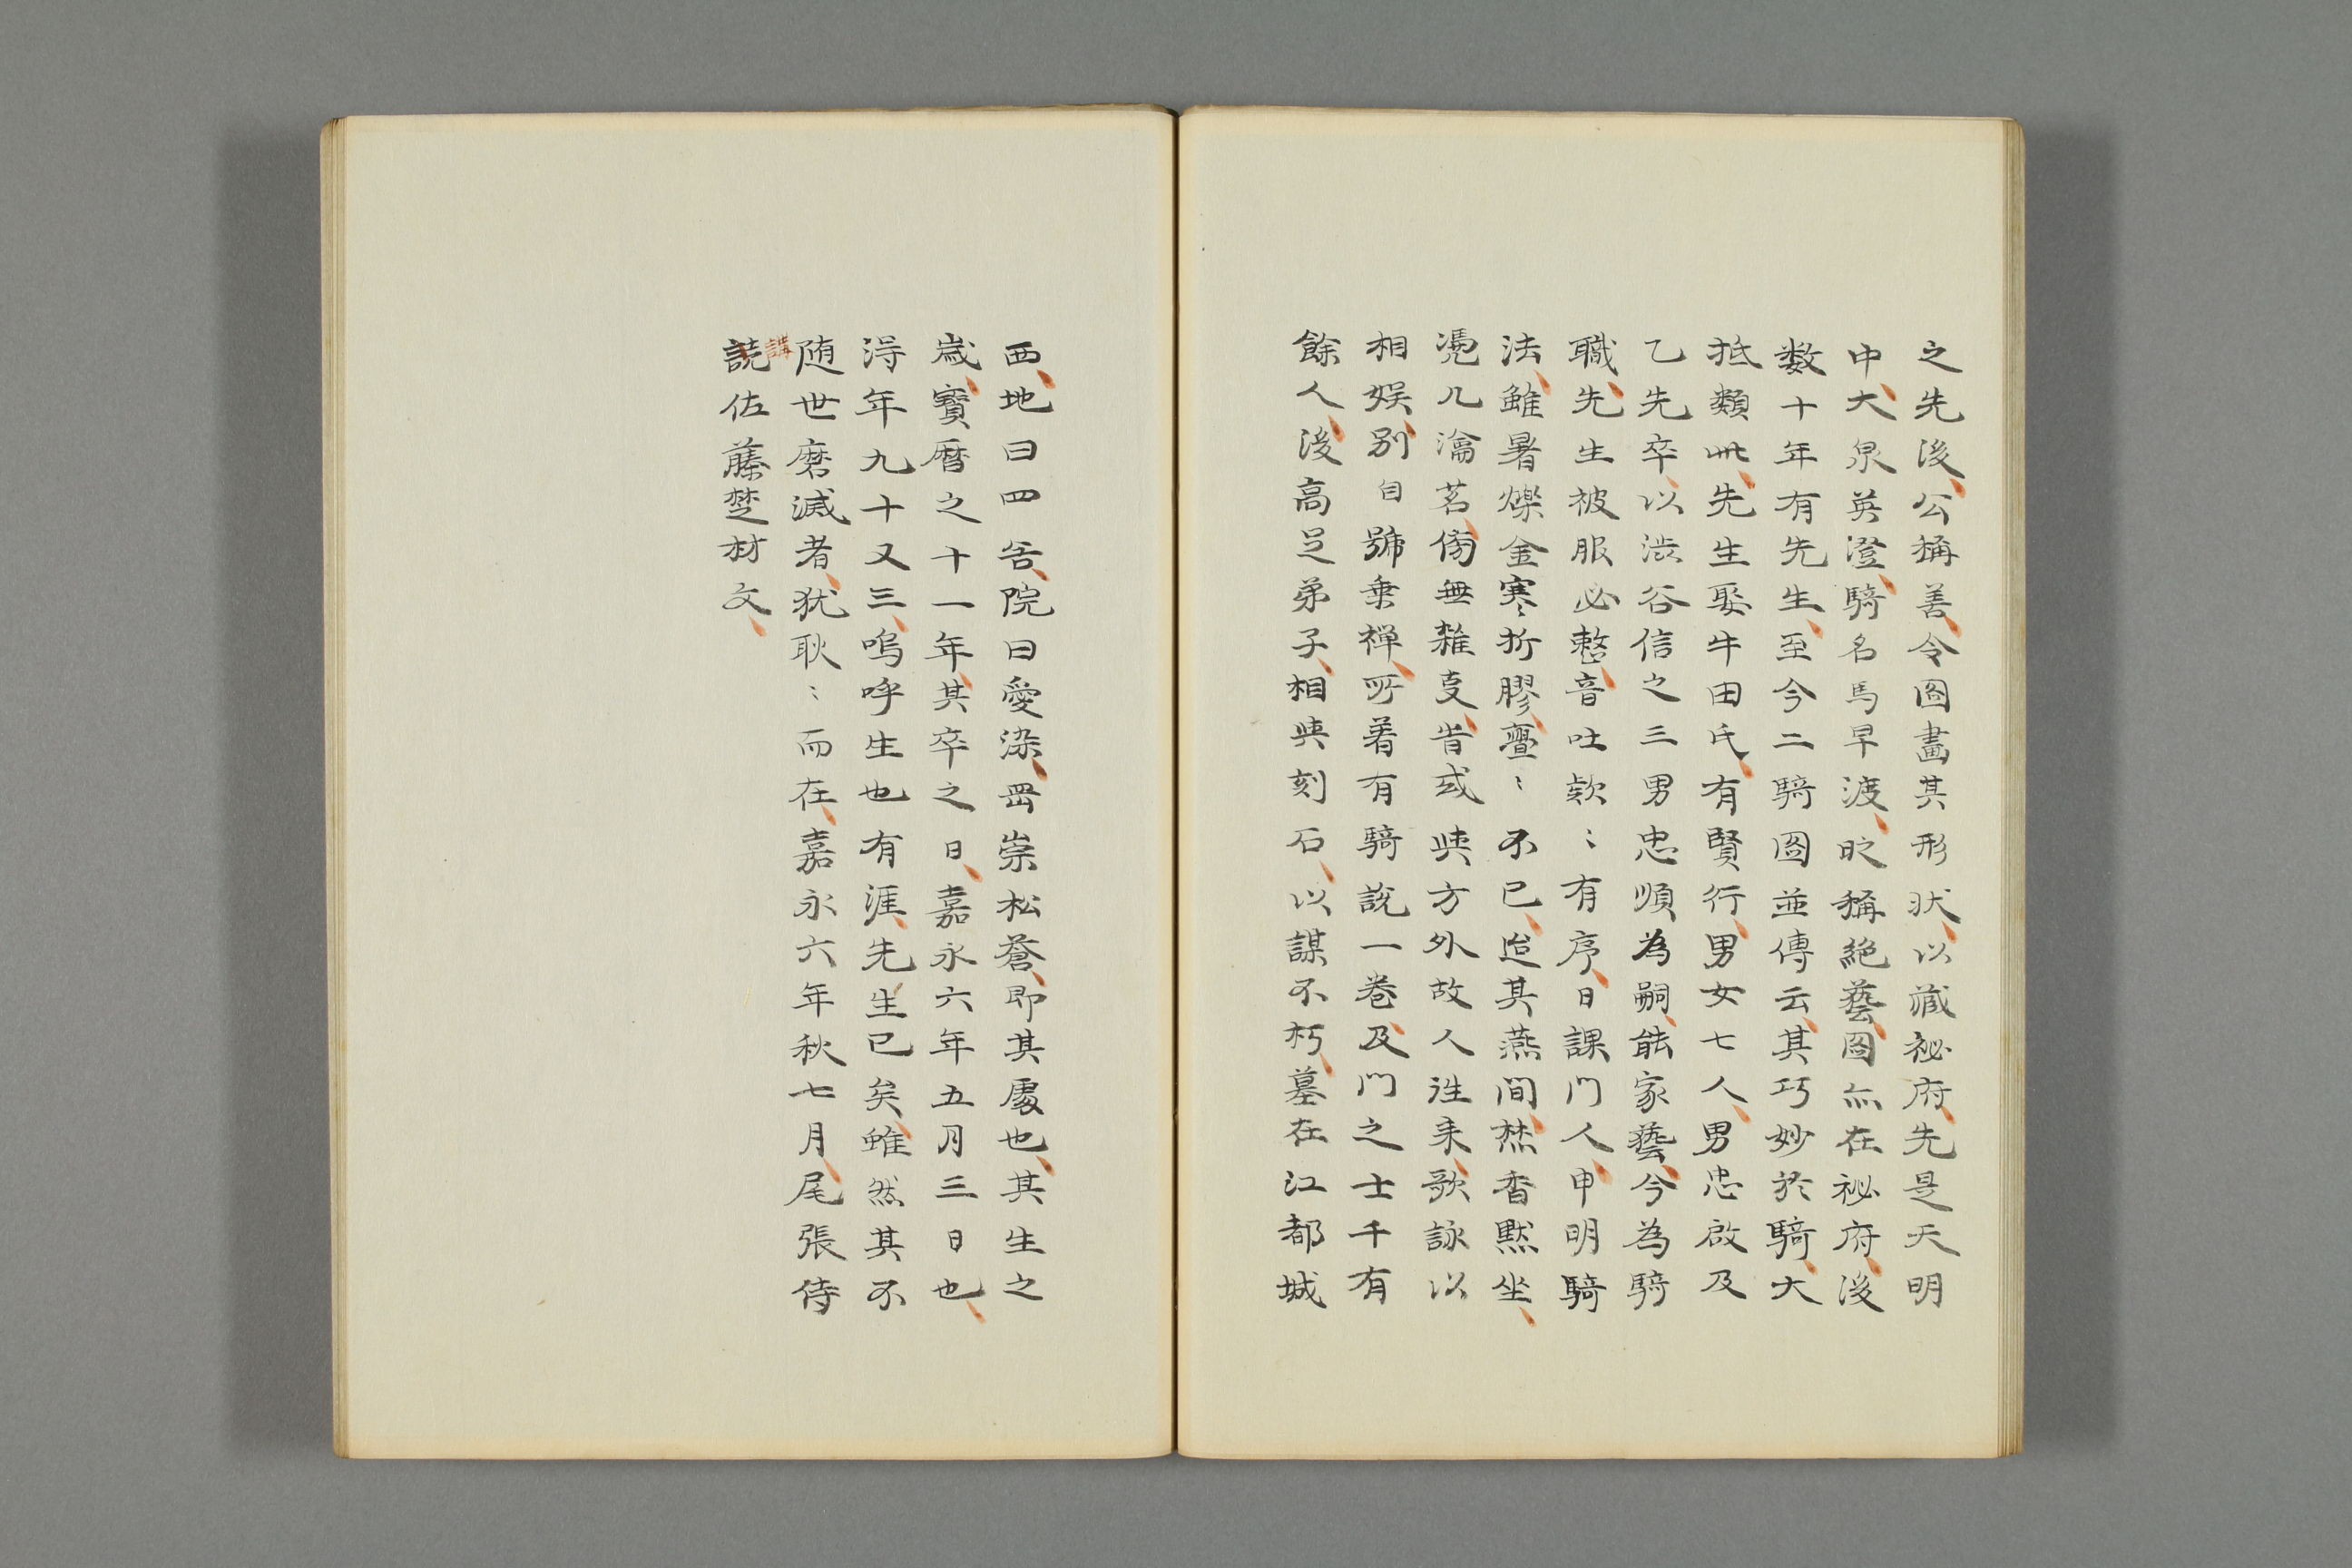 之先後公稱善令圖畫其形狀以藏祕府先是天明
中大泉英澄騎名馬早渡昿稱絕藝圖亦在祕府後
数十年有先生至今二騎圖並傳云其巧妙於騎大
抵類此先生娶牛田氏有賢行男女七人男忠啟及
乙先卒以澁谷信之三男忠順為嗣能家藝今為騎
職先生被服必整音吐款〻有序日課門人申明騎
法雖暑爍金寒折膠亹〻不已迨其燕間焚香默坐
凴几瀹茗傍無雜叓昔或與方外故人往来歌詠以
相娛別自號乗禅所著有騎說一卷及門之士千有
餘人後高足弟子相與刻石以謀不朽墓在江都城
西地曰四谷院曰愛染罡崇松蒼即其處也其生之
歳寶暦之十一年其卒之日嘉永六年五月三日也
淂年九十又三嗚呼生也有涯先生已矣雖然其不
随世磨滅者犹耿〻而在嘉永六年秋七月尾張侍
読佐藤楚材文
講